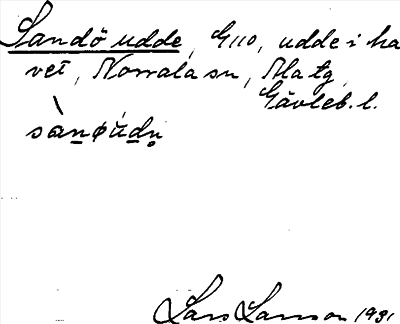 Sandö udde, G110, udde i ha
vet, Norrala sn, Ala tg
Gävleb. l.
sàn̲øúd̲n̥
Lars Larsson 1931